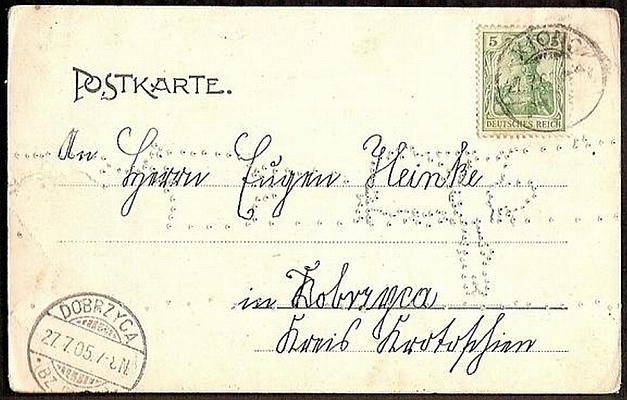 POSTKARTE.
5
DEUTSCHES REICH
An
Herrn Eugen Heinke
in Dobrzyca
Kreis Krotoschien
DOBRZYCA
27.7.05.7-8N
BZ